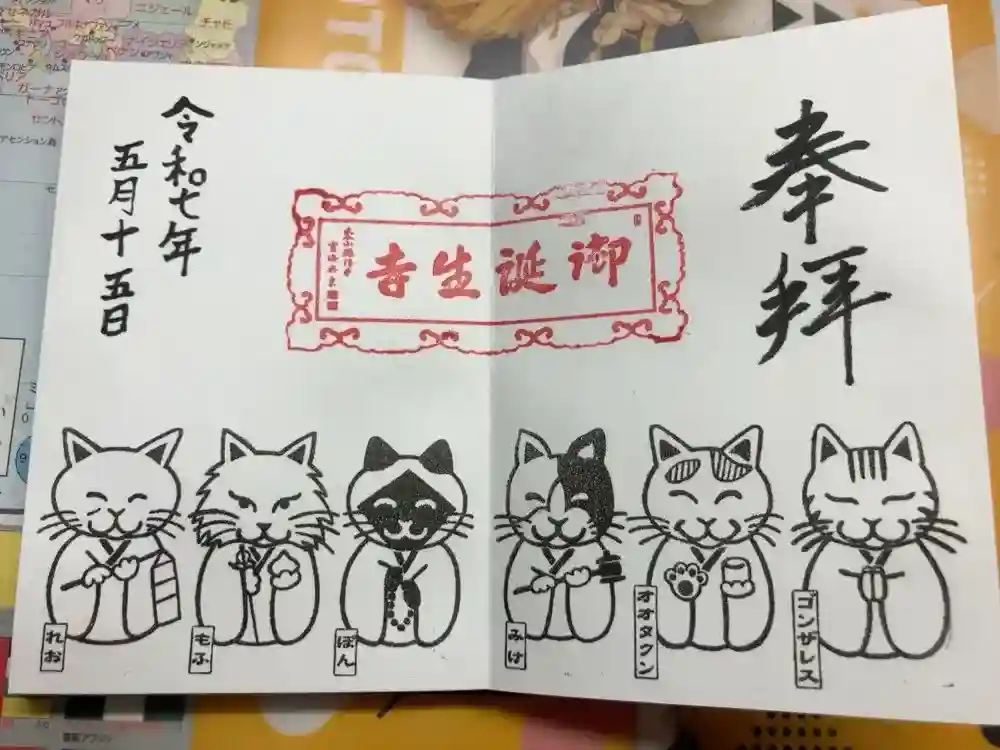 奉拝
御誕生寺
令和七年
五月十五日
れお
もふ
ぽん
みけ
オオタクン
ゴンザレス
コジェール
チャド
ナイジェリア
ガーナ
トーゴ
アセンション島